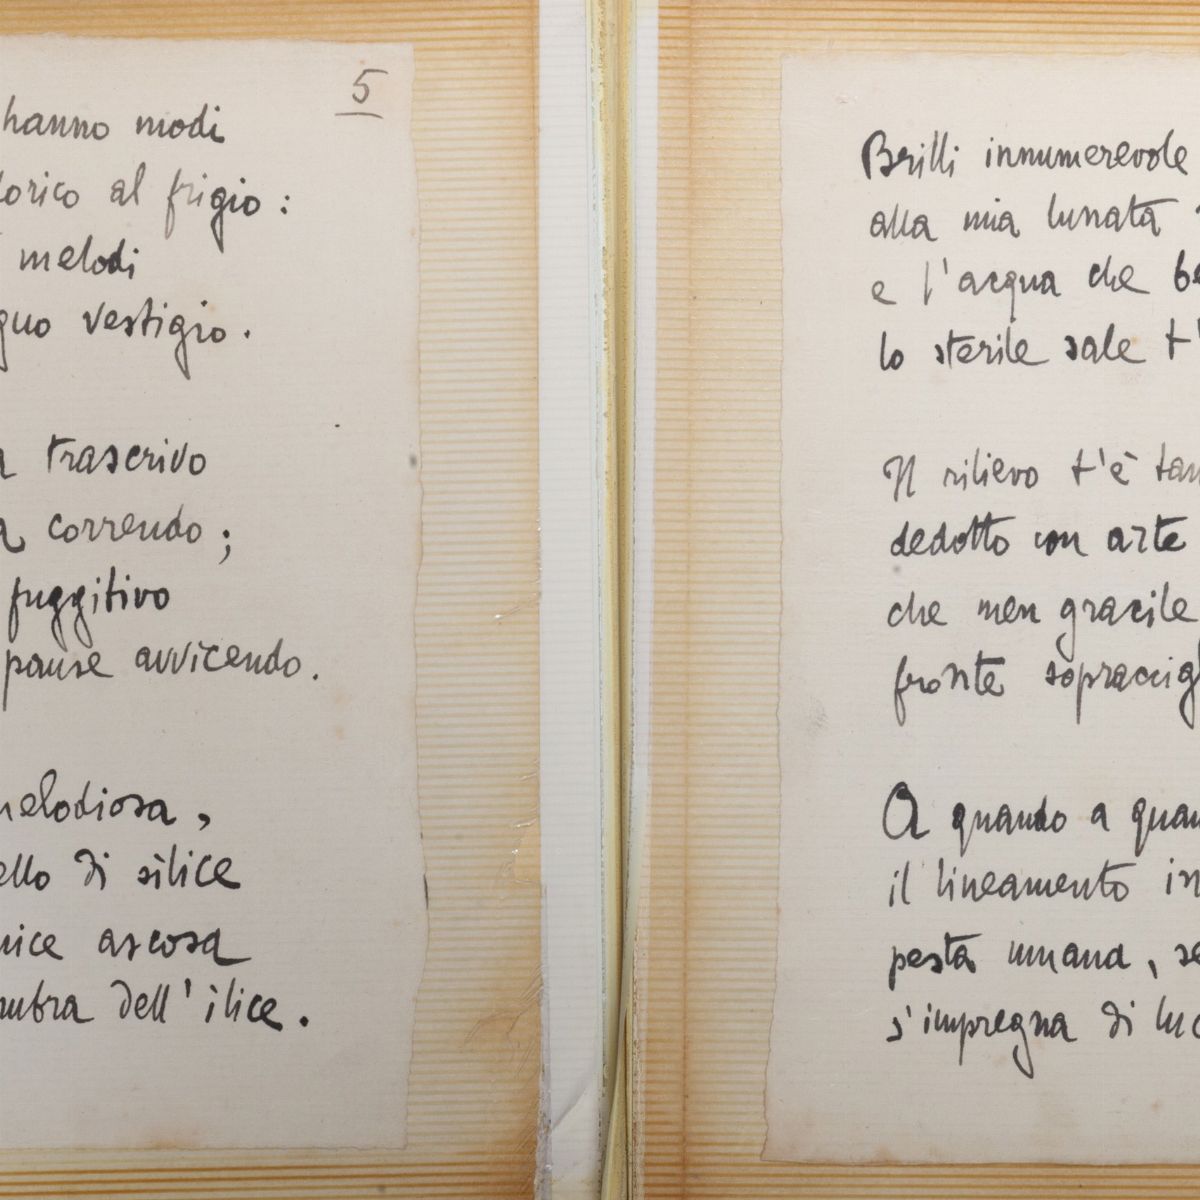 5
hanno modi
dorico al frigio :
melodi
vestigio .
trascrivo
correndo ;
fuggitivo
pause avvicendo .
melodiosa ,
di silice
ascosa
dell' ilice .
Brilli innumerevole
alla mia lunata
e l'acqua che
lo sterile sale
Il rilievo t'è
dedotto con arte
che men gracile
fronte
A quando a
il lineamento
pesta umana ,
s'impregna di